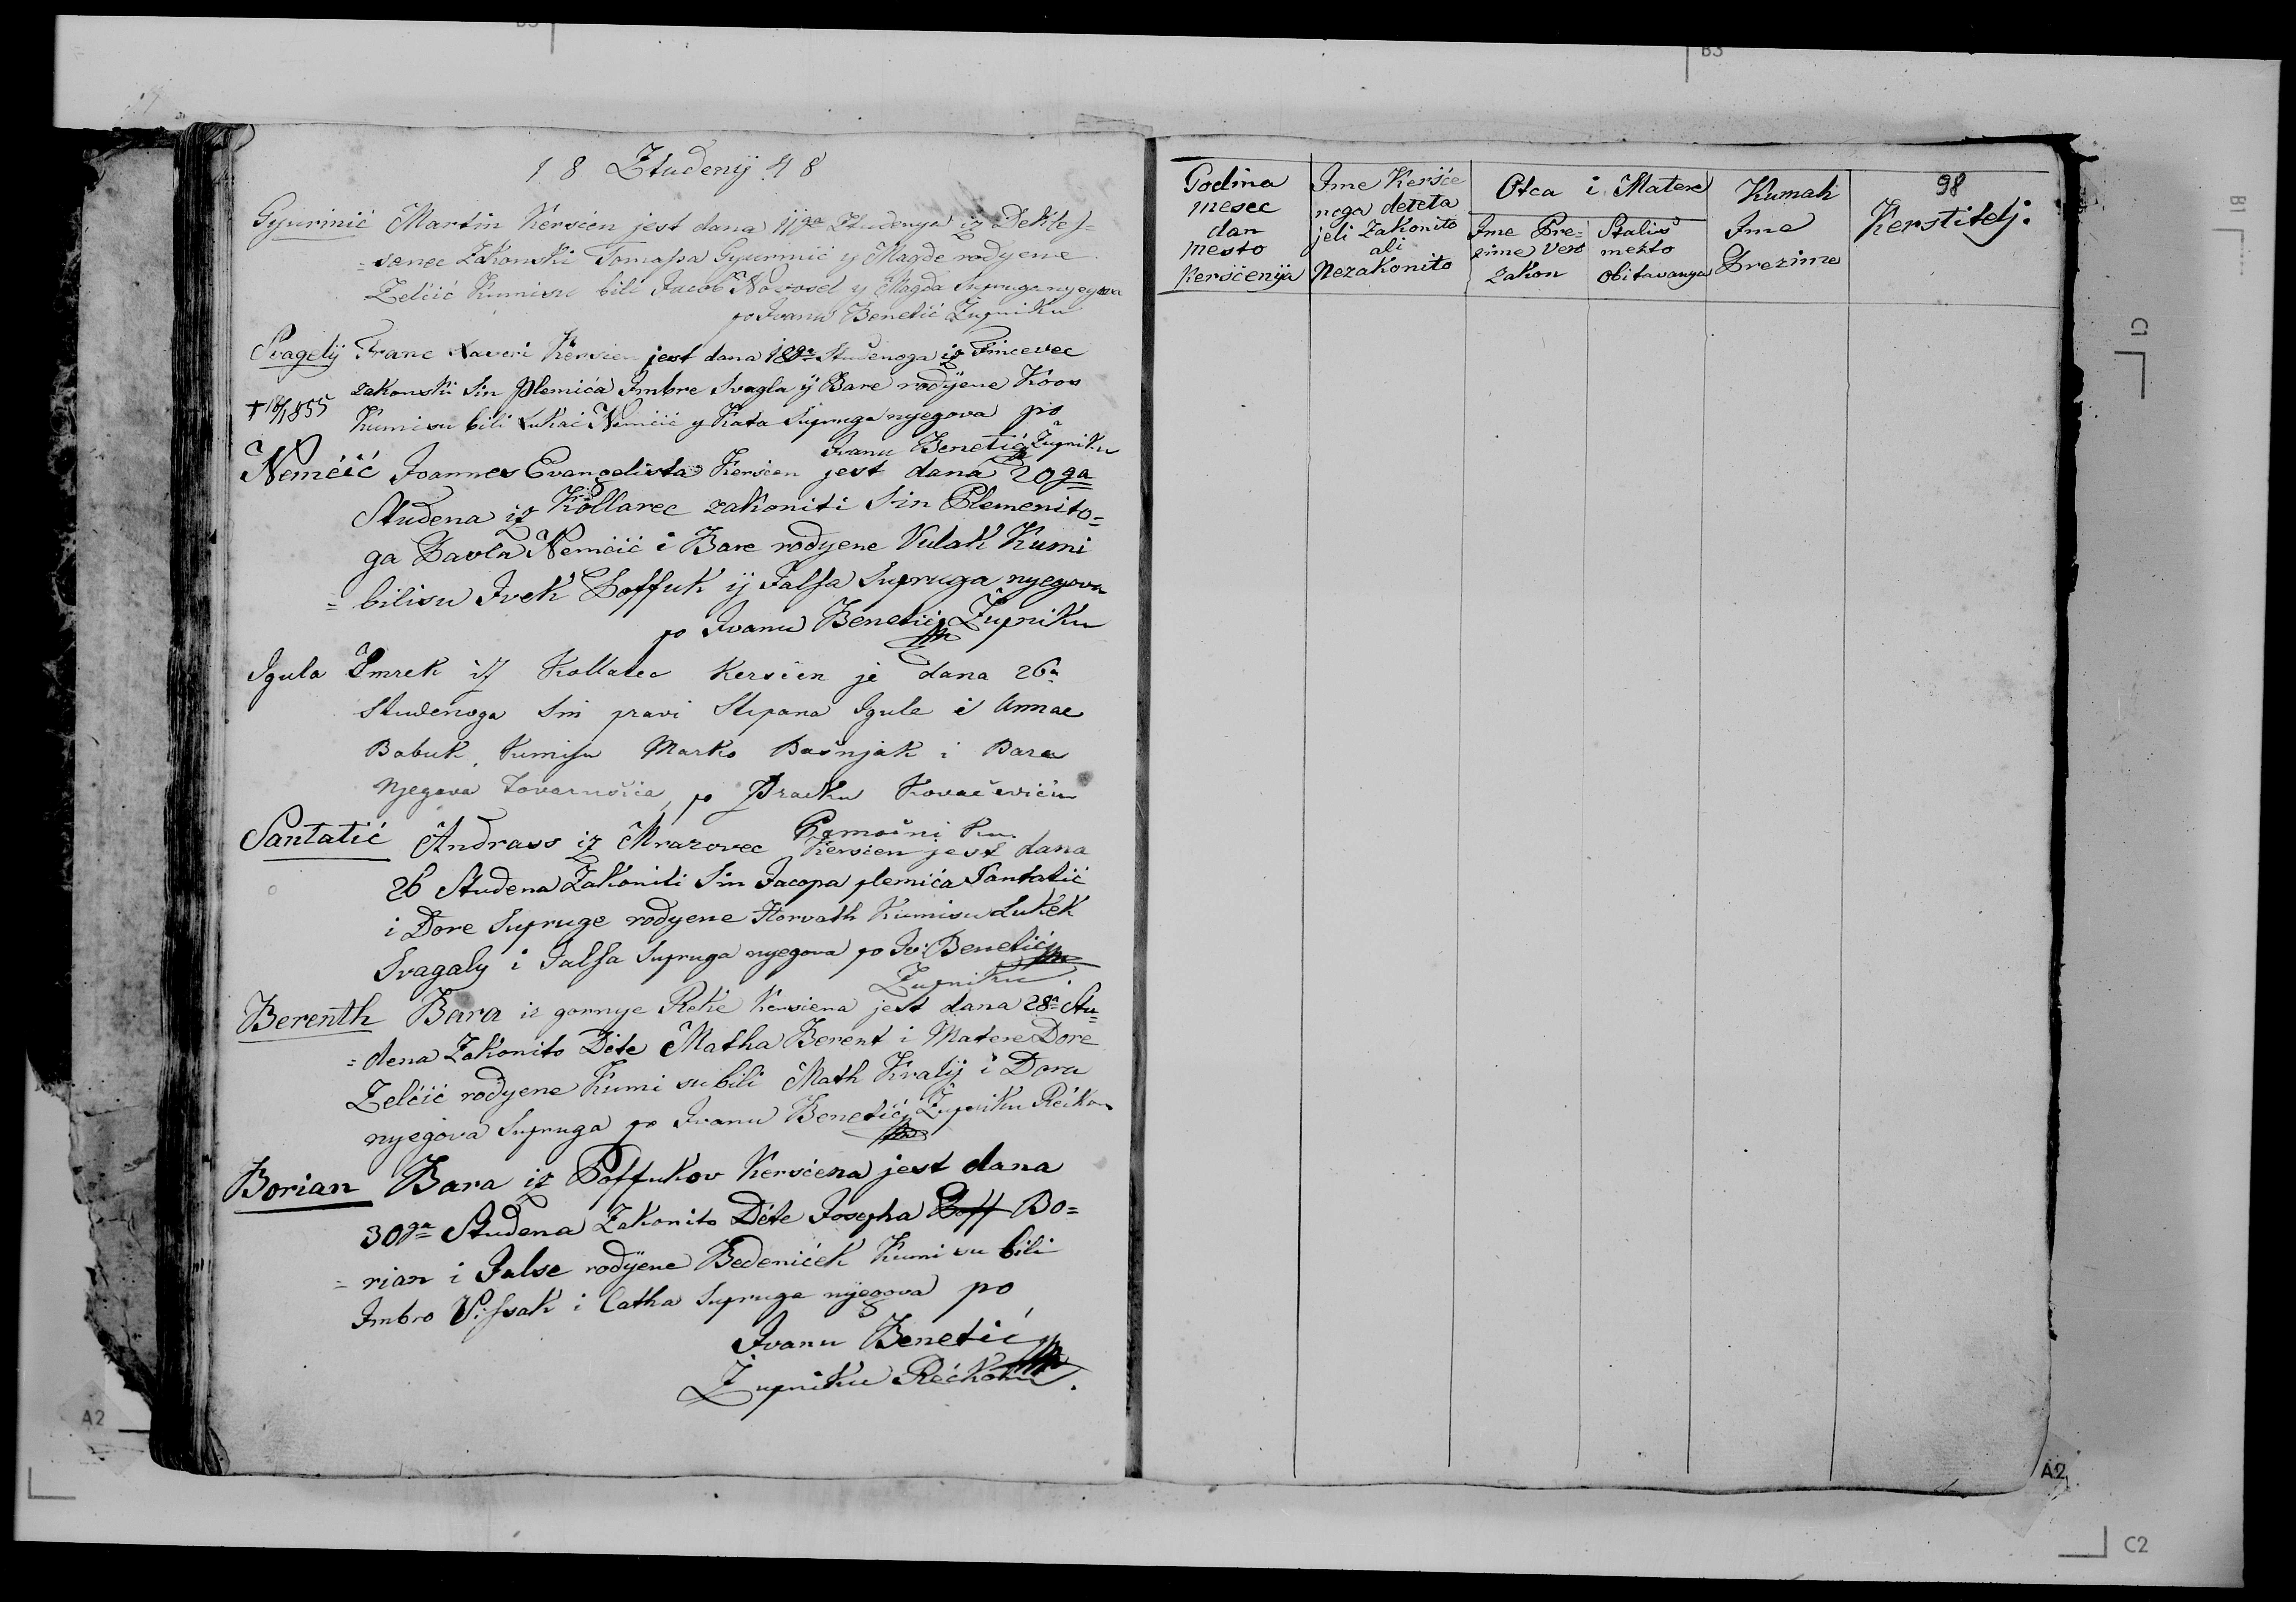 18 Ztudenÿ 48
Gyurinić Martin Kerscen jest dana 11ga Ztudenga iz Dekte)=
=sanec Zakonski Tomassa Gyurinić ÿ Magde rodyene
Zelčić Kumisu bili Jacob Novosel y Magda Supruga nyegova
po Ivanu Benetić Zupniku
Svagelÿ Franc Xaveri Kerscen jest dana 18ga Studenoga iz Fincevec
zakonski Sin Plemića Imbre Svagla ÿ Bare rodÿene Koos
+ 18/1855 Kumisu bili Lukač Nemčić y Kata Supruga nyegova po
Ivanu Benetić Zupniku
Nemčić Joannes Evangelista Kerscen jest dana 20ga
Studena iz Kollarec zakoniti Sin Plemenito=
ga Pavla Nemčić i Bare rodyene Vulak Kumi
= bilisu Ivek Poffuk ÿ Jalsa Supruga nyegova
po Ivanu Benetić Župniku
Igula Imrek iz Kollarec Keršcen je dana 26a
Studenoga Sin pravi Stepana Igule i Annae
Babuk, Kumisu Marko Bašnjak i Bara
Njegova Tovarušica, po Kovačeviću
Pomoćniku
Pantatić Andrass iz Mrazovec Kerscen jest dana
26 Studena Zakoniti Sin Jacopa plemića Pantatić
i Dore Supruge rodyene Horvath Kumisu Lukek
Svagaly i Jalsa Supruga nyegova po Iv: Benetić
Zupniku.
Berenth Bara iz gornye Reke Kerscena jest dana 28a Stu=
=dena Zakonito Dete Matha Berent i Matere Dore
Zelčić rodyene Kumi su bili Math Kralÿ i Dora
nyegova Supruga po Ivanu Benetić Zupniku Rečkom
Borian Bara iz Poffukov Kersćena jest dana
30ga Studena Zakonito Déte Josepha Poff Bo=
=rian i Jalse rodÿene Bedeniček Kumi su bili
Imbro Vissak i Catha Supruga nyegova po
Ivanu Benetić
Zupniku Rečkom.
98
Godina mesec dan mesto Keršćenija
Ime Keršće noga deteta jeli Zakonito ali Nezakonito
Otca i Matere
Ime Pre= zime Vera zakon
Stališ mesto obitavanya
Kumah Ime Prezime
Kerstitelj.
B3
B1
C1
A2
A2
C2